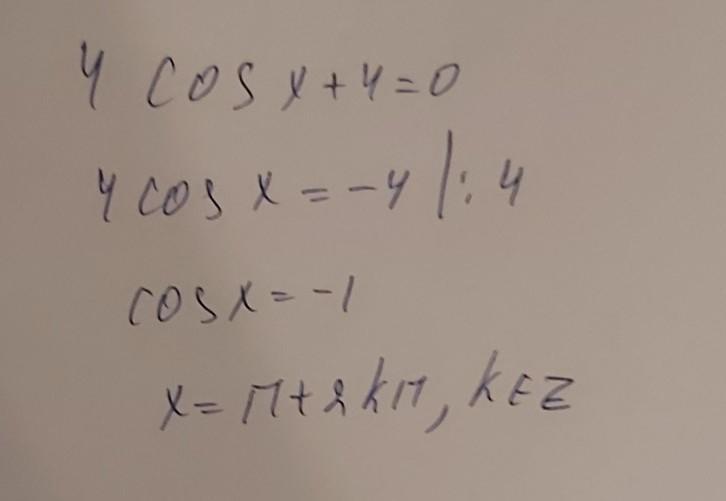 4 cos x + 4 = 0
4 cos x = -4 |: 4
cos x = -1
x = π + 2kπ, k ∈ Z